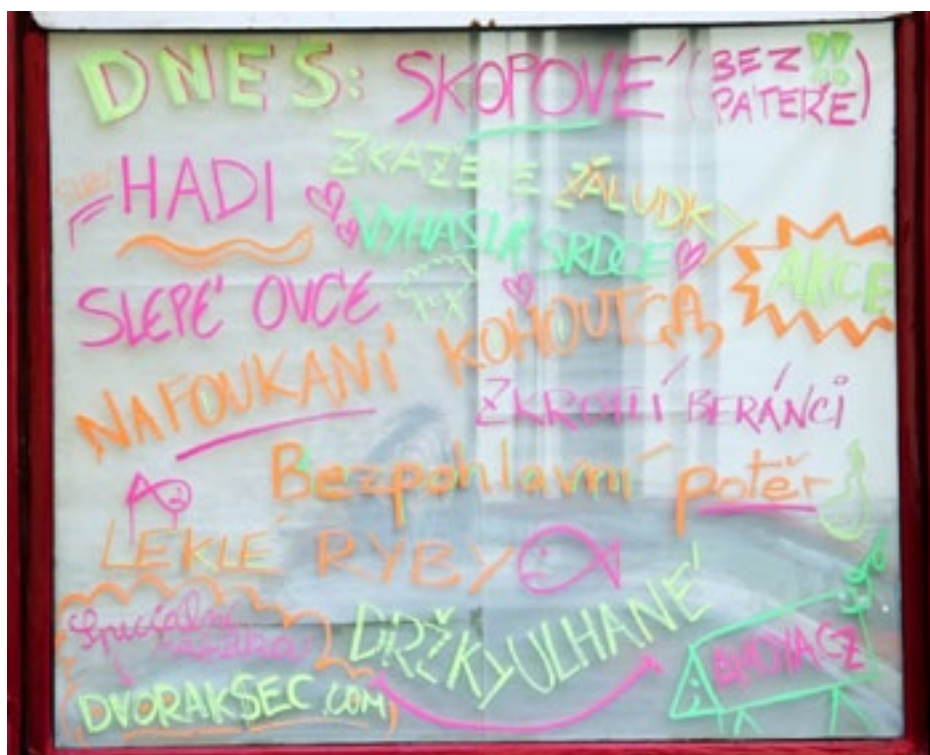 DNES: SKOPOVÉ (BEZ PÁTEŘE) !!
HADI
ZKAŽENÉ ŽALUDKY
VYHASLÁ SRDCE
SLEPÉ OVCE
AKCE
NAFOUKANÍ KOHOUTCA
ZKROTLÍ BERÁNCI
Bezpohlavní potěr
LEKLÉ RYBY
Speciální nabídka
DRŽKY ULHANÉ
DVORAKSEC.COM